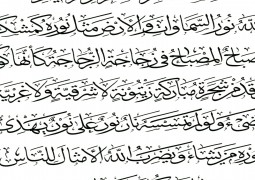 لله نور السموات والأرض مثل نوره كمشك
صباح المصباح في زجاجة الزجاجة كأنها كو
قد من شجرة مباركة زيتونة لا شرقية ولا غربية
ضيء ولو لم تمسسه نار نور على نور يهدي
نوره من يشاء ويضرب الله الأمثال للناس